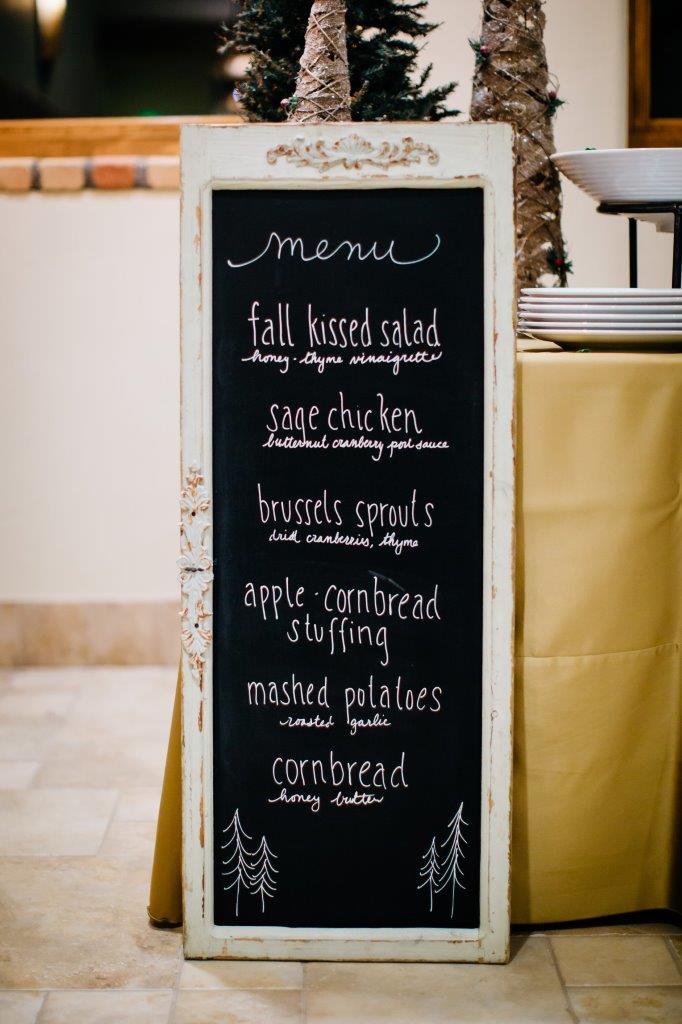 menu
fall kissed salad
honey-thyme vinaigrette
sage chicken
butternut cranberry port sauce
brussels sprouts
dried cranberries, thyme
apple·cornbread
stuffing
mashed potatoes
roasted garlic
cornbread
honey butter